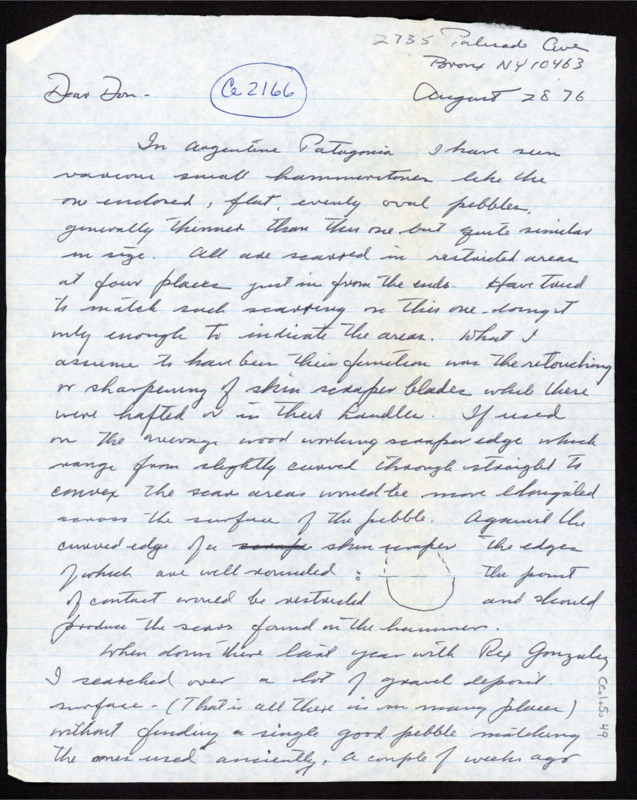 2735 Palisade Ave
Bronx NY 10463
Dear Don -
Ce 2166
August 28 76
In Argentine Patagonia I have seen
various small hammerstones like the
one enclosed, flat, evenly oval pebbles,
generally thinner than this one but quite similar
in size. All are scarred in restricted areas
at four places just in from the ends. Have tried
to match such scarring on this one - doing it
only enough to indicate the areas. What I
assume to have been their function was the retouching
or sharpening of skin scraper blades while these
were hafted or in their handles. If used
on the average wood working scraper edge which
range from slightly curved through straight to
convex the scar areas would be more elongated
across the surface of the pebble. Against the
curved edge of a scrape skin scraper the edges
of which are well rounded : the point
of contact would be restricted and should
produce the scars found on the hammer.
When down there last year with Rex Gonzalez
I searched over a lot of gravel deposit
surface - (That is all there is in many places)
without finding a single good pebble matching
the ones used anciently. A couple of weeks ago